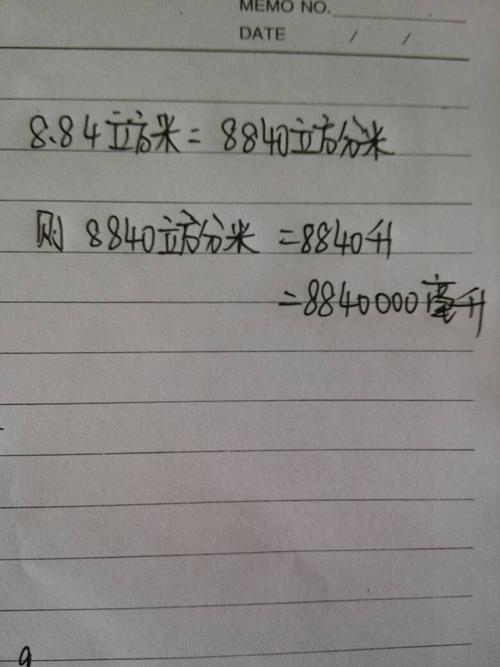 MEMO NO.
DATE / /
8.84立方米=8840立方分米
则 8840立方分米=8840升
=8840000毫升
9